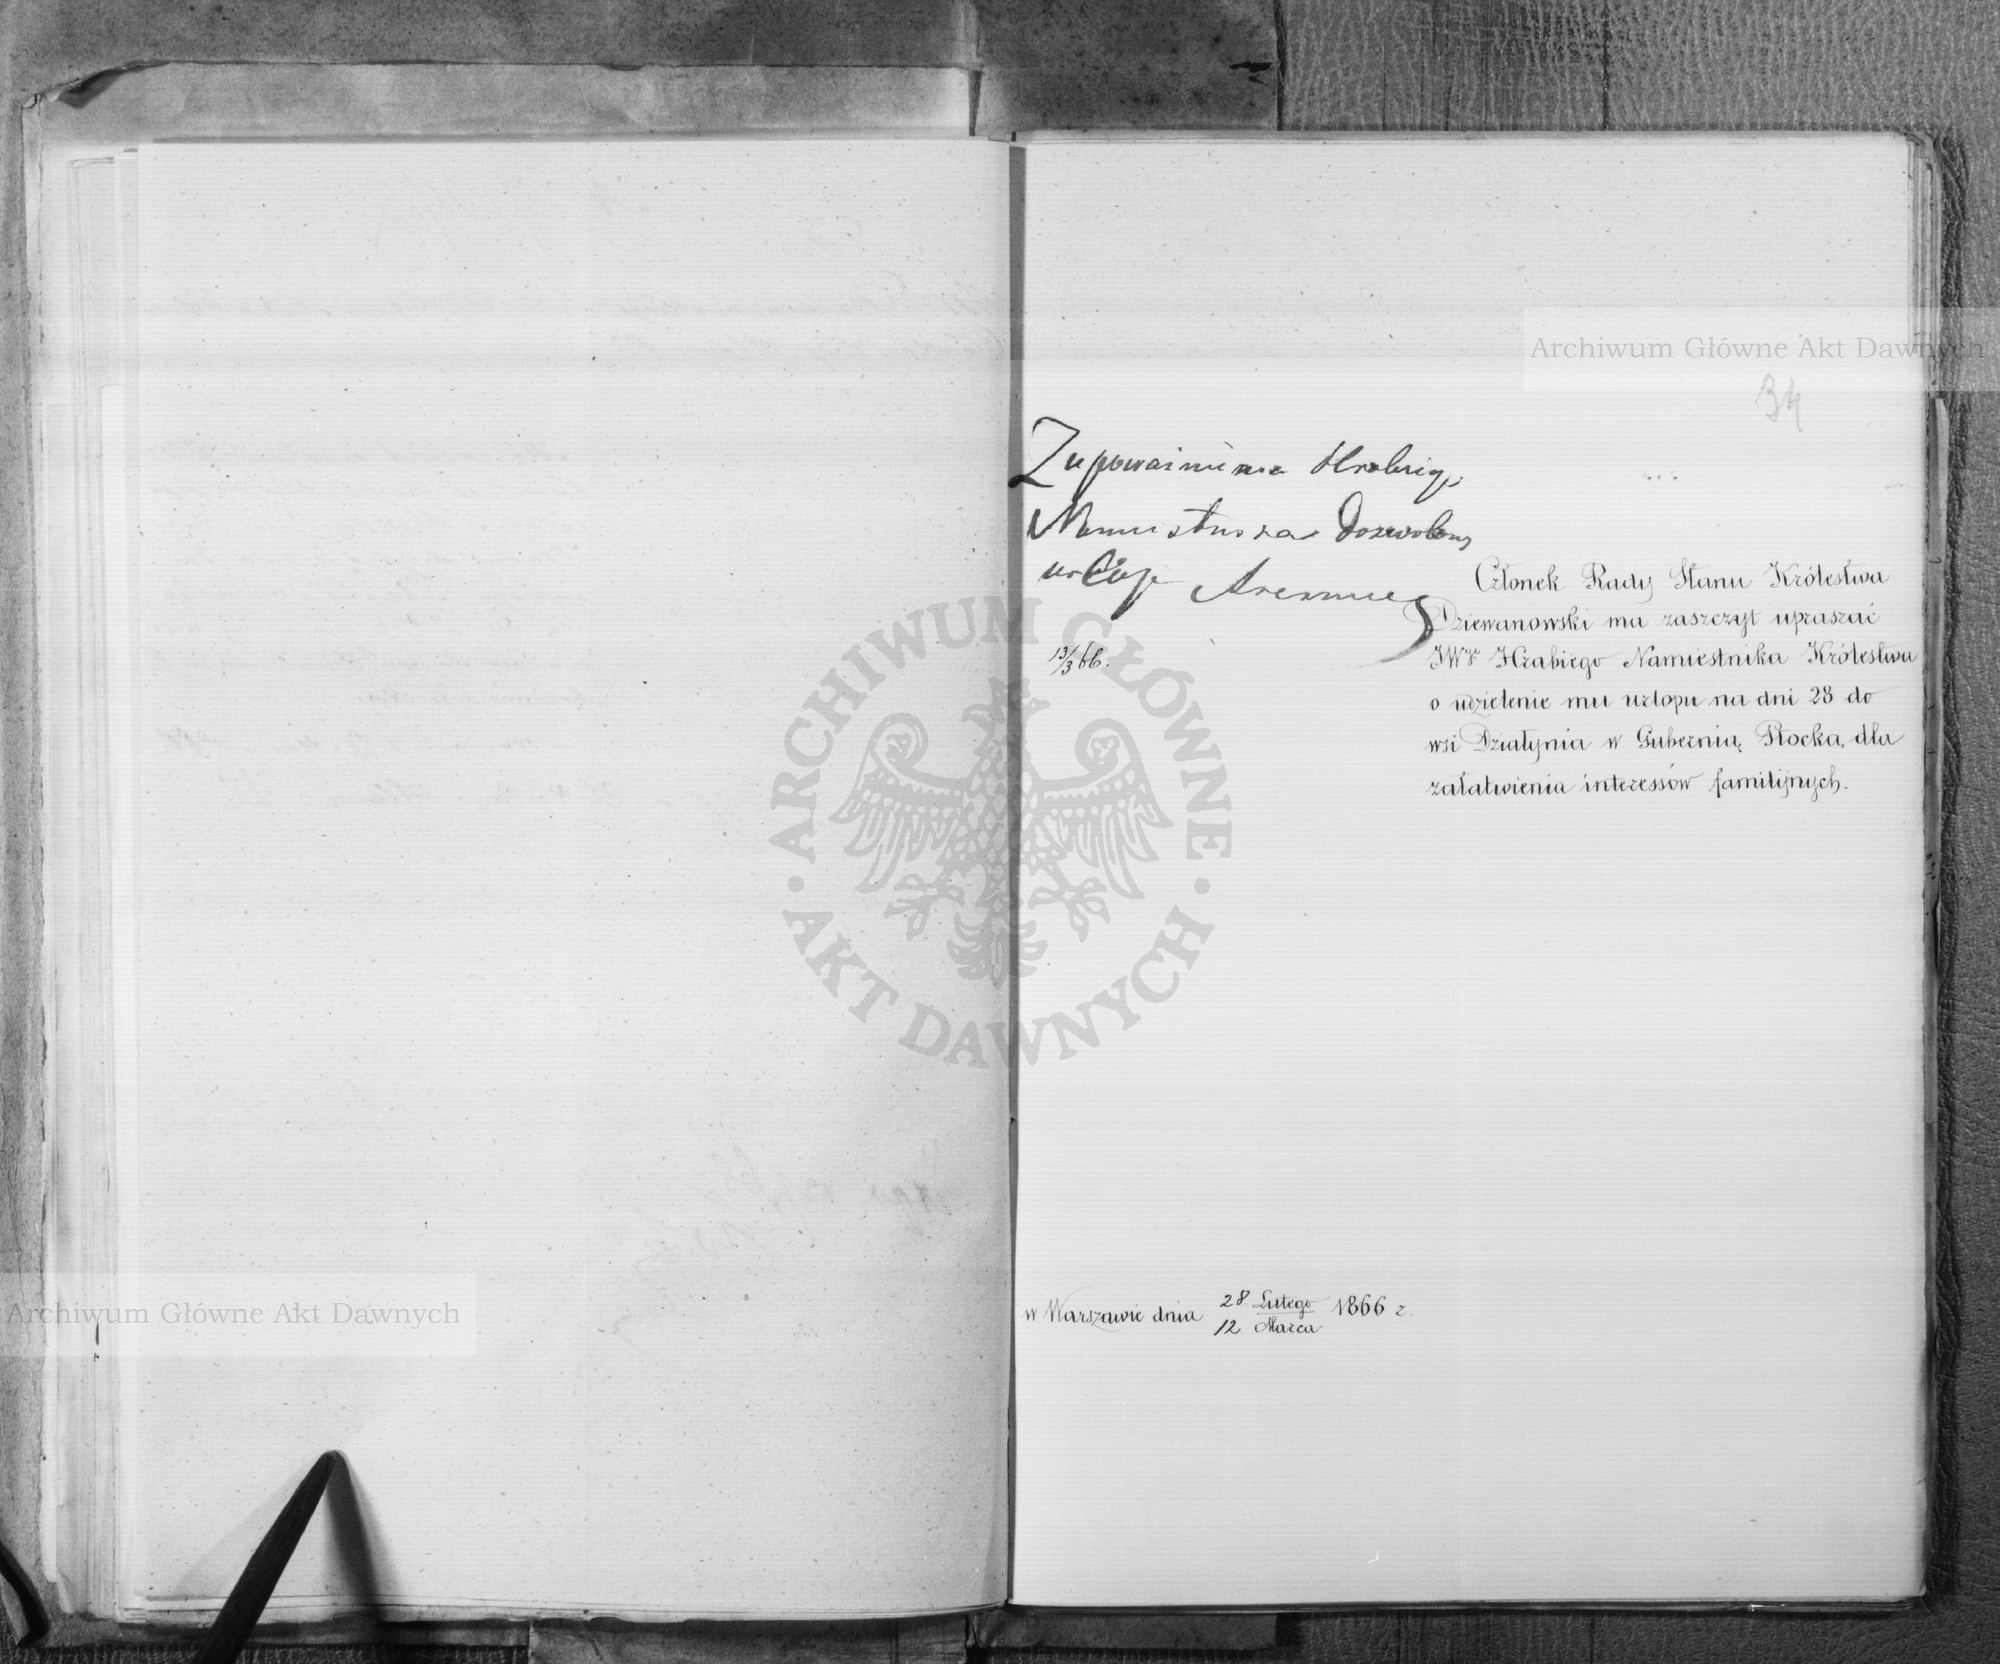 Archiwum Główne Akt Dawnych
34
Z upoważnienia Hrabiego
Namiestnika Dozwolony
urlop
13/3 66.
Członek Rady Stanu Królestwa
Dziewanowski ma zaszczyt upraszać
JWgo Hrabiego Namiestnika Królestwa
o udzielenie mu urlopu na dni 28 do
wsi Działynia w Gubernią Płocką, dla
załatwienia interessów familijnych.
ARCHIWUM GŁÓWNE
AKT DAWNYCH
Archiwum Główne Akt Dawnych
w Warszawie dnia 28 Lutego / 12 Marca 1866 r.